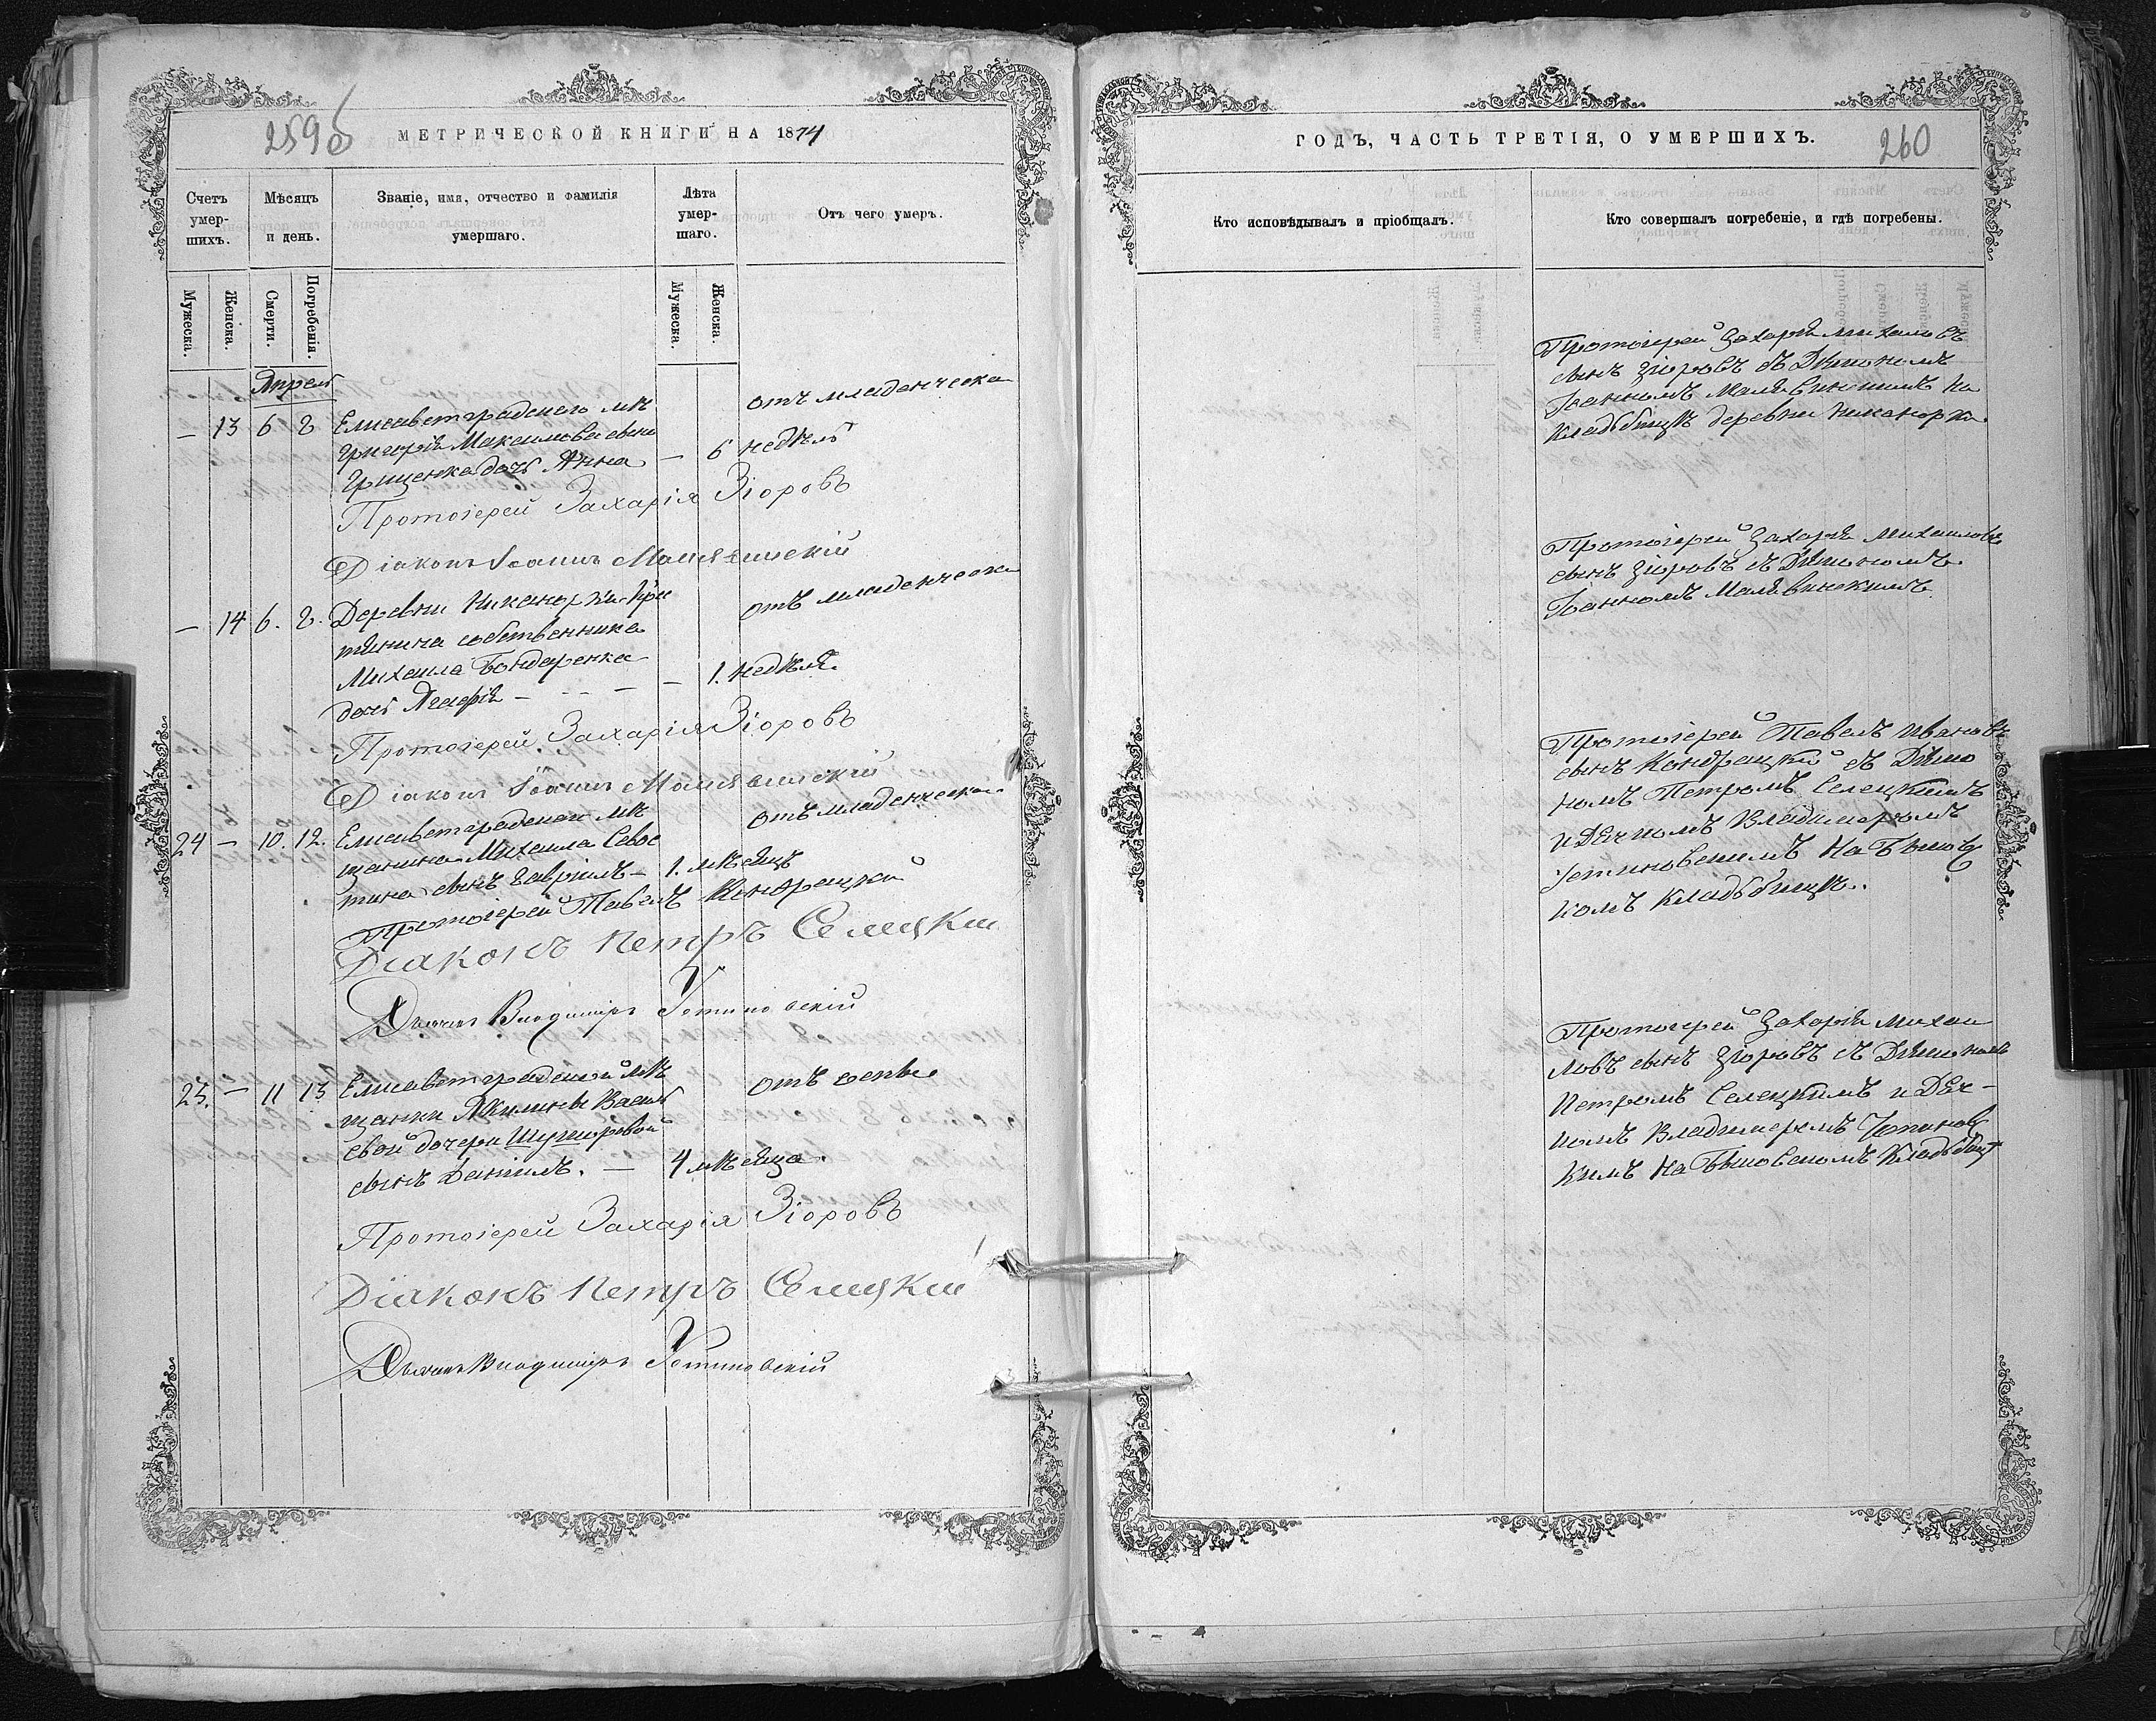 259б
МЕТРИЧЕСКОЙ КНИГИ НА 1874
Счетъ умер-шихъ.
Мѣсяцъ и день.
Званіе, имя, отчество и фамилія умершаго.
Лѣта умер-шаго.
Отъ чего умеръ.
Мужеска.
Женска.
Смерти.
Погребенія.
Мужеска.
Женска.
Апрель
— 13 6 8 Елисаветградскаго мѣ
отъ младенческа
Григорія Максимова сына
Грищенка дочь Анна — 6 недѣль
Протоіерей Захарія Зіоровъ
Діаконъ Іоаннъ Малявинскій
— 14 6. 8. Деревни Никанорки кре
отъ младенческа
тянина собственника
Михаила Бондаренка
дочь Агафія — — — 1. недѣля.
Протоіерей Захарія Зіоровъ
Діаконъ Іоаннъ Малявинскій
24 — 10. 12. Елисаветградскаго мѣ
отъ младенческаго
щанина Михаила Севос
тина сынъ Гавріилъ — 1. мѣсяцъ
Протоіерей Павелъ Кондрацкій
Діаконъ Петръ Селецкій
Дьячекъ Владиміръ Устиновскій
25. — 11 13 Елисаветградской мѣ
отъ оспы
щанки Акилины Василь
евой дочери
сынъ Даніилъ. — 4 мѣсяца.
Протоіерей Захарія Зіоровъ
Діаконъ Петръ Селецкій
Дьячекъ Владиміръ Устиновскій
ГОДЪ, ЧАСТЬ ТРЕТІЯ, О УМЕРШИХЪ.
260
Кто исповѣдывалъ и пріобщалъ.
Кто совершалъ погребеніе, и гдѣ погребены.
Протоіерей Захарія Михаиловъ
сынъ Зіоровъ съ Діакономъ
Іоанномъ Малявинскимъ на
кладбищѣ деревни Никанорки.
Протоіерей Захарія Михаиловъ
сынъ Зіоровъ съ Діакономъ
Іоанномъ Малявинскимъ
Протоіерей Павелъ Ивановъ
сынъ Кондрацкій съ Діако
номъ Петромъ Селецкимъ
и Дячкомъ Владимеромъ
Устиновскимъ на Быковс
комъ кладбищѣ.
Протоіерей Захарія Михаи
ловъ сынъ Зіоровъ съ Діакономъ
Петромъ Селецкимъ и Дяч-
комъ Владимеромъ Устиновс
кимъ на Быковскомъ кладбищѣ